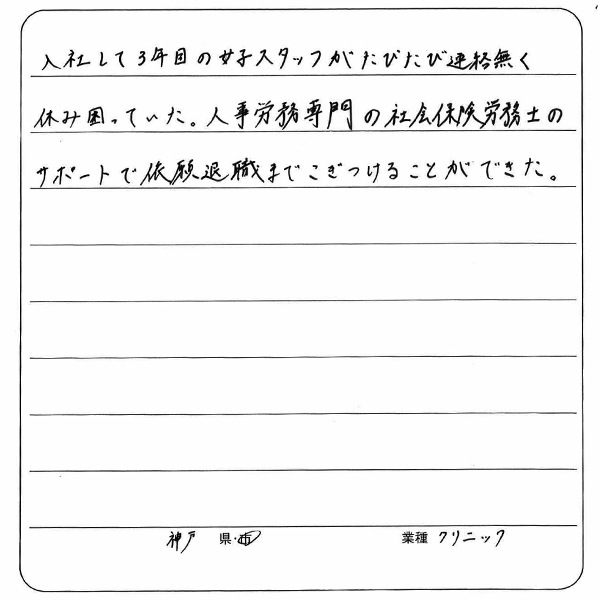 入社して3年目の女子スタッフがたびたび連絡無く
休み困っていた。人事労務専門の社会保険労務士の
サポートで依願退職までこぎつけることができた。
神戸 県・市 業種 クリニック